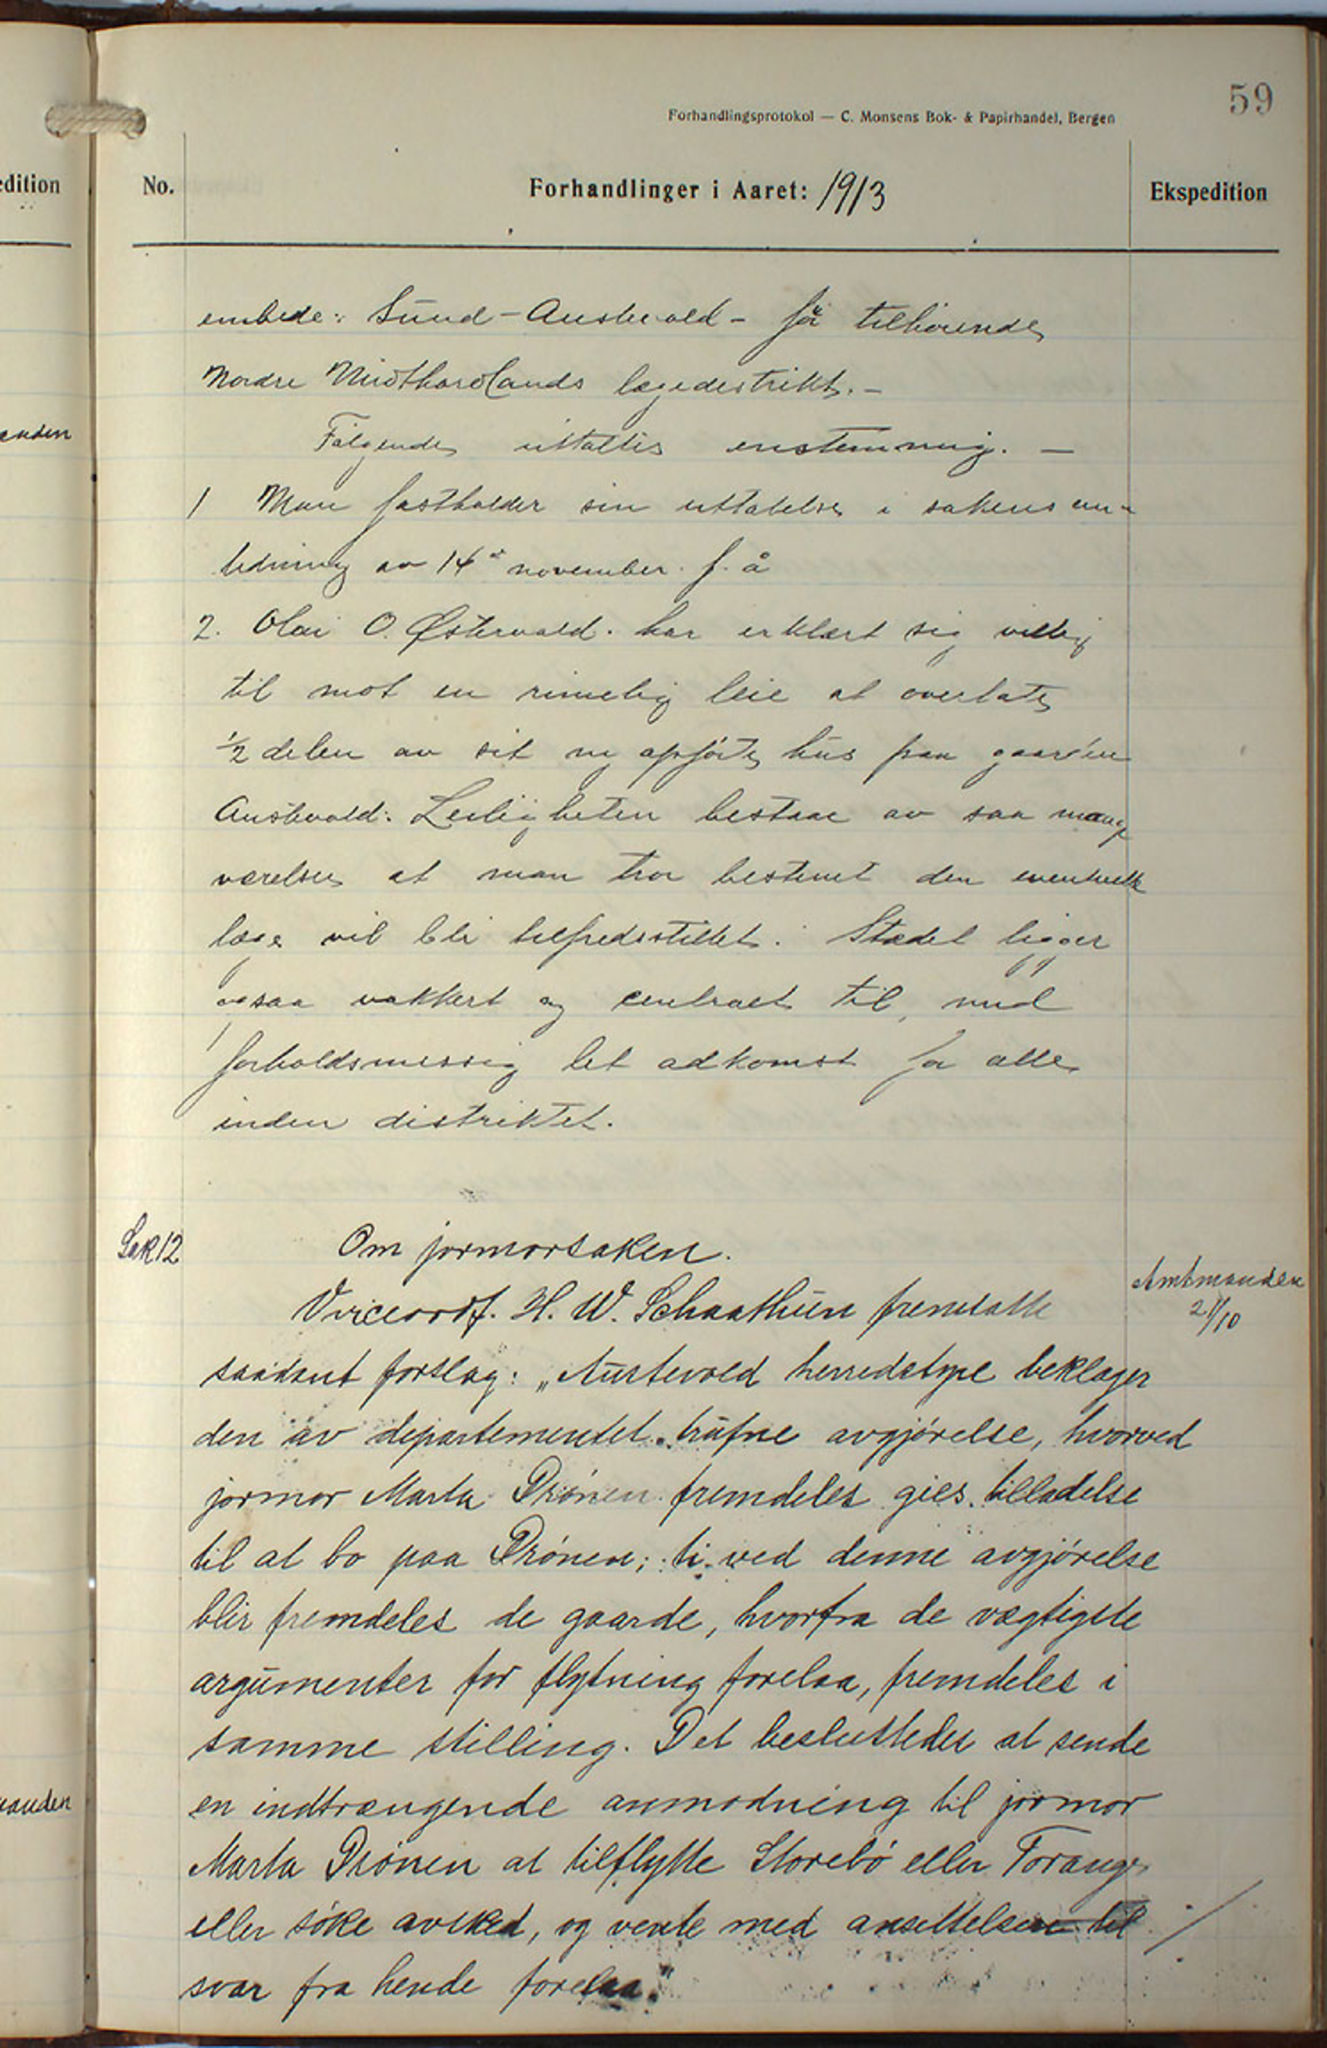 59
Forhandlingsprotokol — C. Monsens Bok- & Papirhandel, Bergen
edition
No.
Forhandlinger i Aaret: 1913
Ekspedition
embede: Sund - Austevold - før tilhørende
Nordre Midthordlands lægedistrikt. –
Følgende uttaltes enstemmig. —
1 Man fastholder sin uttalelse i sakens an-
ledning av 14de november f. å
2. Olai O. Østervold. har erklært sig villig
til mot en rimelig leie at overlate
1/2 delen av sit ny opførte hus paa gaarden
Austevold. Leiligheten bestaar av saa mange
værelser at man tror bestemt den eventuelle
læge vil bli tilfredsstillet. Stædet ligger
ogsaa vakkert og centralt til, med
forholdsmessig let adkomst for alle
inden distriktet.
Sak 12
Om jormorsaken.
Amtmanden
Viceordf. H. W. Schaathun fremsatte
21/10
saadant forslag: „Austevold herredstyre beklager
den av departementet trufne avgjørelse, hvorved
jormor Marta Drønen fremdeles gies tilladelse
til at bo paa Drønen; ti ved denne avgjørelse
blir fremdeles de gaarde, hvorfra de vægtigste
argumenter for flytning forelaa, fremdeles i
samme stilling. Det besluttedes at sende
en indtrængende anmodning til jormor
Marta Drønen at tilflytte Storebø eller Torange
eller søke avsked, og vente med ansættelsen til
svar fra hende forelaa."